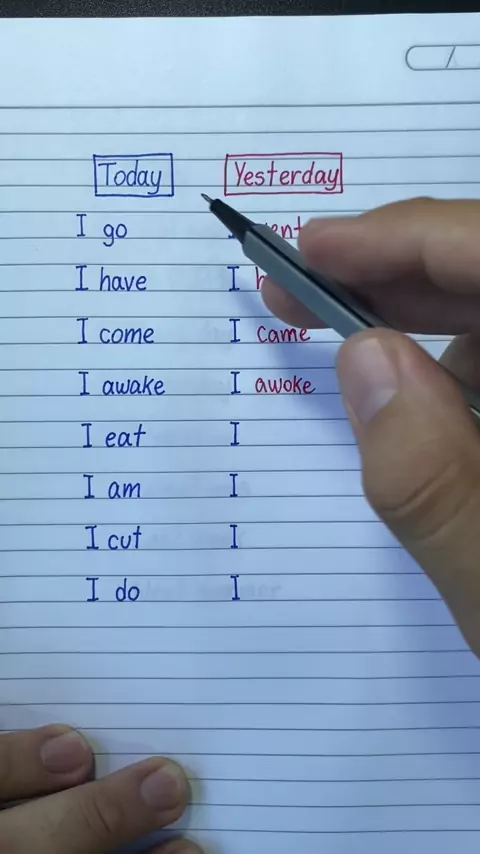 Today Yesterday
I go I
I have I
I come I came
I awake I awoke
I eat I
I am I
I cut I
I do I